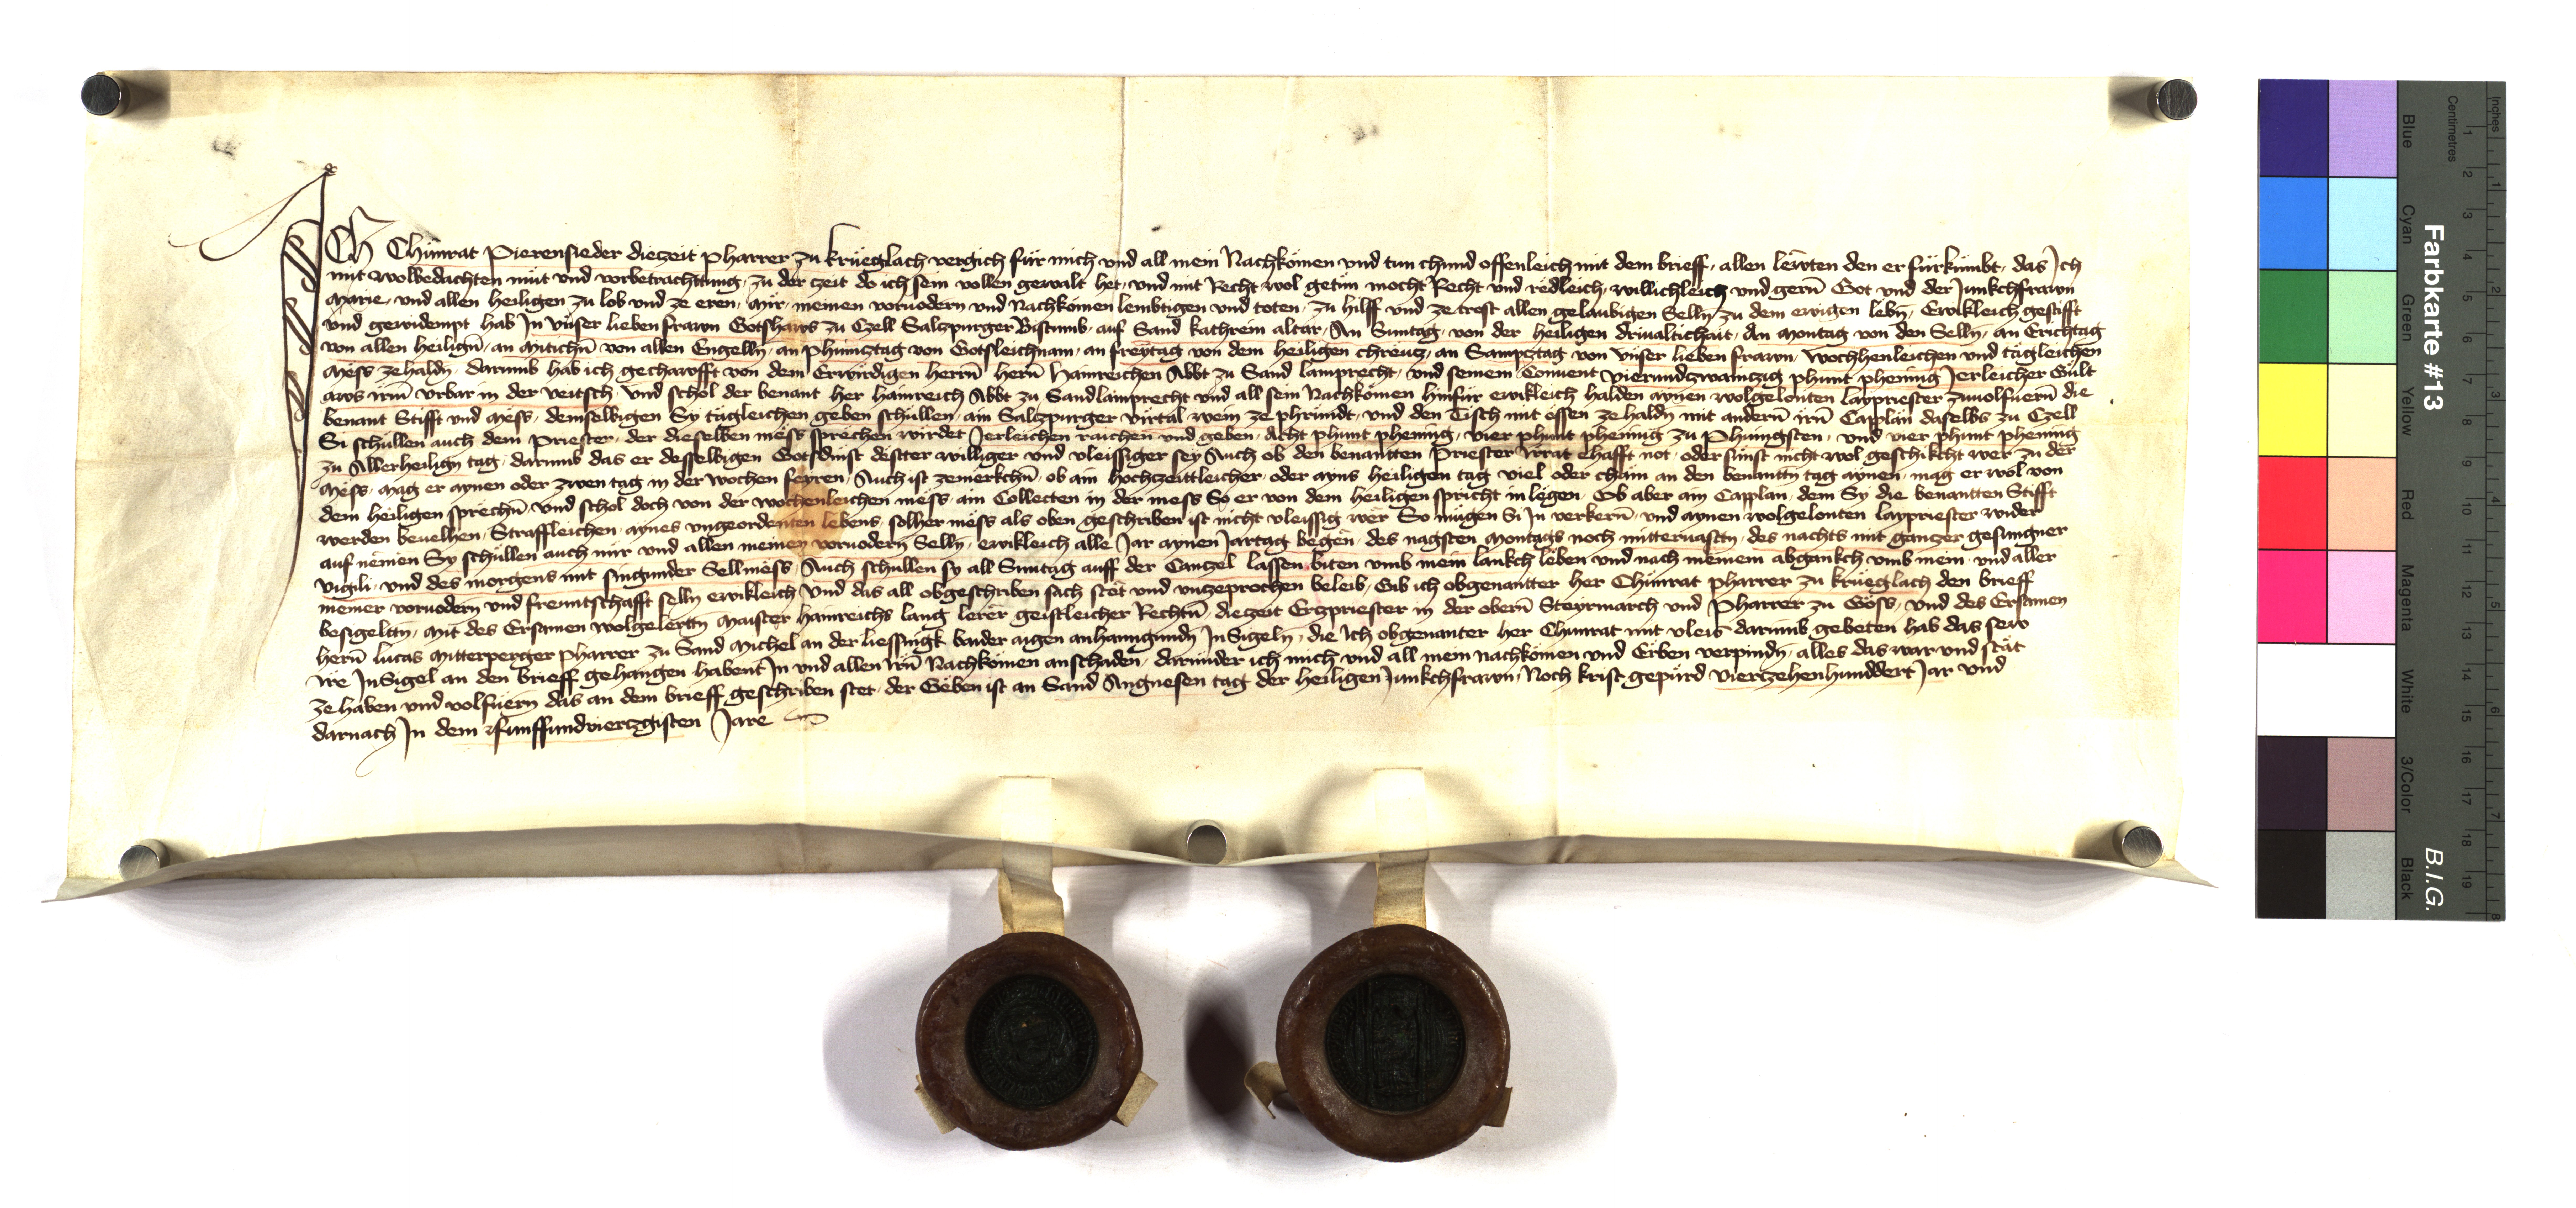 Ich Chunrat Pierensieder diezeit pharrer zu krüeglach vergich für mich vnd all mein Nachkömen vnd tun chund offenleich mit dem brieff, allen lëwten den er fürkümbt, das Ich
mit wolbedachten müt vnd vorbetrachttung, zu der zeit do ich sein vollen gewalt het, vnd mit Recht wol getün mocht Recht vnd redleich, willichleich vnd gern̄ Got vnd der Junkchfrawn
Marie, vnd allen heiligen zu lob vnd ze eren, Mir, meinen voruodern vnd Nachkömen lembtigen vnd toten, zu hilff vnd ze trost allen gelaubigen Selln̄ zu dem ewigen lebn̄, Ewikleich gestifft
vnd gewidempt hab In vnser lieben frawn Gotshaws zu Czell Salczpurger Bistumb, auf Sand kathrein altar, An Suntag, von der heiligen driualtichait, An Montag von den Selln̄, an Erichtag
von allen heilign̄, an Mitichn̄ von allen Engelln̄, an phincztag von Gotsleichnam, an freytag von dem heiligen chreucz, an Sampcztag von vnser lieben frawn, wochhenleichen vnd tägleichen
Mëss zehaldn̄, darumb hab ich gechawfft von dem Erwirdigen herrn̄ hern̄ Hainreichen Abbt zu Sand lamprecht, vnd seinem Conuent vierundzwainczig phunt phening Jerleicher Gült
aws irm̄ vrbar in der veitsch, vnd schol der benant her hainreich Abbt zu Sand lamprecht vnd all sein Nachkömen hinfür ewikleich halden aynen wolgelonten laypriester zuuolfuern̄ die
benant Stifft vnd Mëss, demselbigen Sy tägleichen geben schullen, ain Salczpurger virtal wein ze phründt, vnd den Tisch mit essen ze haldn̄ mit andern̄ irn̄ Capplän daselbs zu Czell
Si schullen auch dem Priester, der dieselben mëss sprechen wirdet Jerleichen raichen vnd geben, Acht phunt phening, vier phunt phening zu Phingsten, vnd vier phunt phening
zu Allerheilign̄ tag, darumb das er desselbigen Gotsdinst dëstter williger vnd vleissiger sey Auch ob den benantten Priester irrat ehafft not, oder sünst nicht wol geschikcht wer zu der
Mëss, Mag er aynen oder zwen tag in der wochen feyren, Auch ist zemerkchn̄, ob ain hochzeittleicher, oder ayns heiligen tag viel oder chäm an den benanttn̄ tag aynen, mag er wol von
dem heiligen sprechn̄, vnd schol doch von der wochenleichen mëss, ain Collecten in der mess So er von dem heiligen spricht in legen, Ob aber ain Capplan, dem Sy die benantten Stifft
werden beuelhen, Straffleichen, aynes vngeordenten lebens, solher mëss als oben geschriben ist nicht vleissig wer So mügen Si In verkern̄, vnd aynen wolgelonten laypriester wider
auf nëmen Sy schullen auch mir vnd allen meinen voruodern̄ Selln̄, ewikleich alle Jar aynen Jartag begen, des nagsten Montags noch mitteruastn̄, des nachts mit ganczer gesungner
vigili, vnd des morgens mit singunder Sellmëss, Auch schullen sy all Suntag auff der Canczel lassen biten vmb mein lankch lëben vnd nach meinem abgankch vmb mein, vnd aller
meiner voruodern vnd freuntschafft selln̄ ewikleich Vnd das all obgeschriben sach stët vnd vnzeprochen beleib, Gib ich obgenantter her Chünrat pharrer zu krüeglach den brieff
besigelttn̄, Mit des Ersamen wolgelerttn̄ Maister hainreichs lang lerër geistleicher Rechtn̄, diezeit Erczpriester in der obern̄ Steyrmarch vnd Pharrer zu Göss, vnd des Ersamen
hern̄ lucas Mitterperger pharrer zu Sand Michel an der liessingk baider aigen anhanngundn̄ InSigeln̄, die Ich obgenanter her Chunrat mit vleis darumb gebeten hab das sew
ire InSigel an den brieff gehangen habent In vnd allen irn̄ Nachkömen an schaden, darunder ich mich vnd all mein nachkömen vnd Erben verpindn̄, alles das war vnd stät
ze haben vnd volfuern̄ das an dem brieff geschriben stet, der Geben ist an Sand Angnesen tag der heiligen Junkchfrawn, Noch krist gepürd vierczehenhunddert Jar vnd
darnach In dem fünffundvierczgisten Jare
Farbkarte #13
B.I.G.
Inches
Centimetres
Blue
Cyan
Green
Yellow
Red
Magenta
White
3/Color
Black
1 2 3 4 5 6 7 8 9 10 11 12 13 14 15 16 17 18 19
1 2 3 4 5 6 7 8